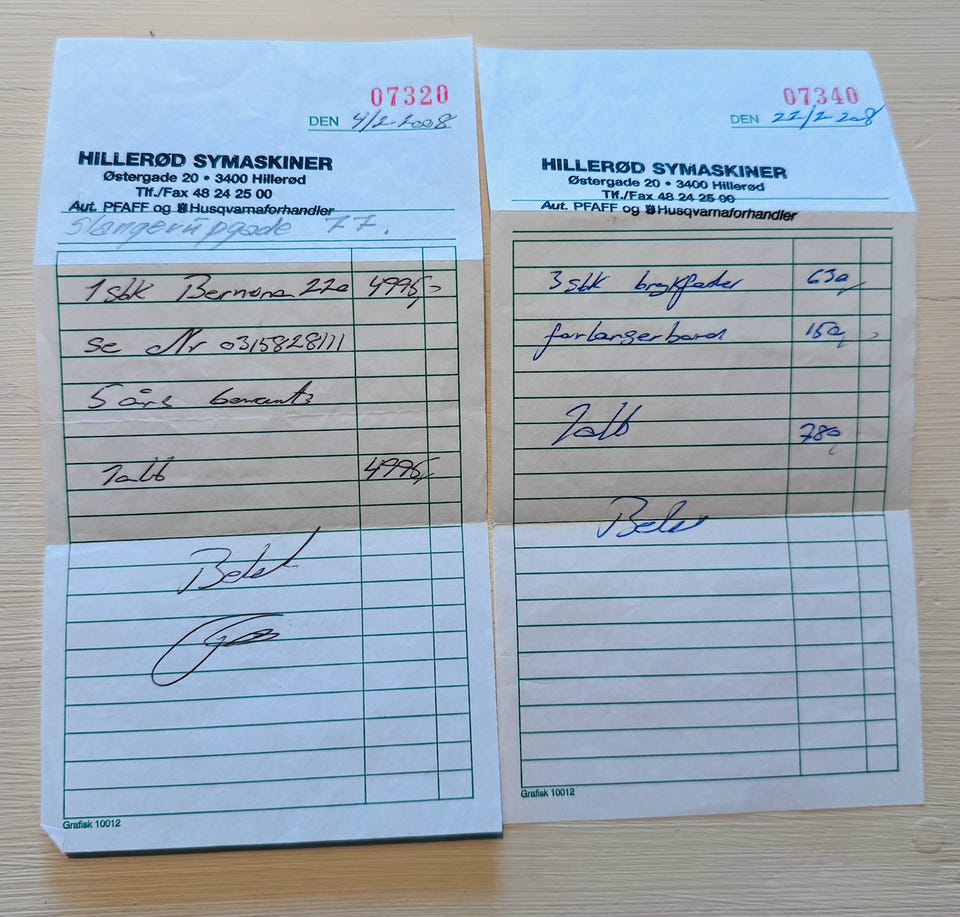 07320
DEN 4/2-2008
HILLERØD SYMASKINER
Østergade 20 • 3400 Hillerød
Tlf./Fax 48 24 25 00
Aut. PFAFF og Husqvarnaforhandler
Slangerupgade 77.
1 stk Bernina 220 4995,-
se Nr 0315828111
5 års
Ialt 4995,-
Betal
Grafisk 10012
07340
DEN 22/2-2008
HILLERØD SYMASKINER
Østergade 20 • 3400 Hillerød
Tlf./Fax 48 24 25 00
Aut. PFAFF og Husqvarnaforhandler
3 stk 630,
forlængerbord 150,
Ialt 780,
Betal
Grafisk 10012